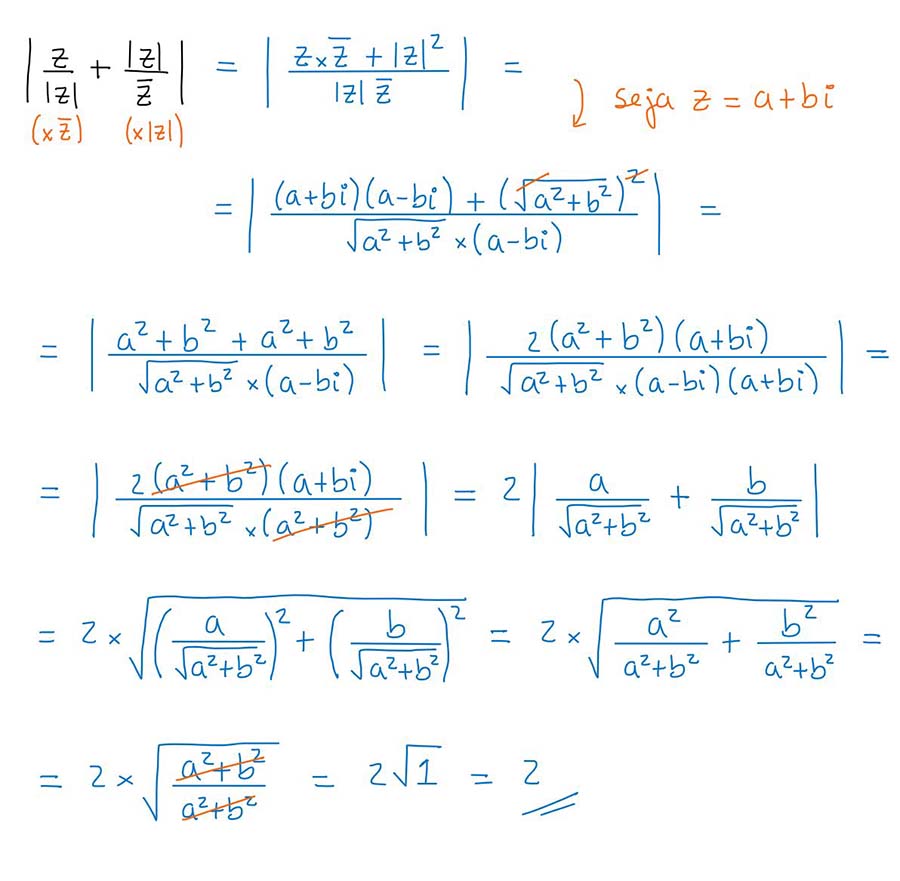 |z/|z| + |z|/z̅| = |(z×z̅ + |z|²)/(|z| z̅)| =
(×z̅) (×|z|)
seja z = a+bi
= |((a+bi)(a-bi) + (√(a²+b²))²)/(√(a²+b²) ×(a-bi))| =
= |(a²+b² + a²+b²)/(√(a²+b²) ×(a-bi))| = |(2(a²+b²)(a+bi))/(√(a²+b²) ×(a-bi)(a+bi))| =
= |(2(a²+b²)(a+bi))/(√(a²+b²) ×(a²+b²))| = 2|a/√(a²+b²) + b/√(a²+b²)|
= 2×√((a/√(a²+b²))² + (b/√(a²+b²))²) = 2×√(a²/(a²+b²) + b²/(a²+b²)) =
= 2×√((a²+b²)/(a²+b²)) = 2√1 = 2